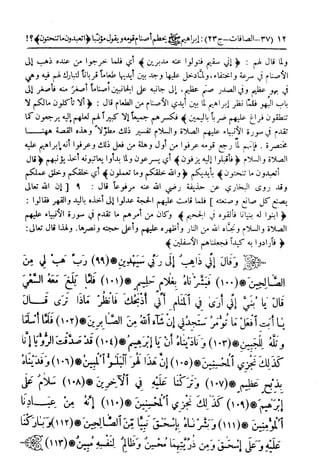 ١٢ (٣٧- الصافات - ج٢٣): إبراهيم ﷺ يحطم أصنام قومه ويقول مؤنباً ﴿أتعبدون ما تنحتون﴾؟!
ولما قال لهم: ﴿إني سقيم فتولوا عنه مدبرين﴾ أي فلما خرجوا من عنده ذهب إلى
الأصنام في سرعة واختفاء، ولما دخل عليها وجد بين أيديها طعاماً قرباناً لتبارك لهم فيه وهي
في بهو عظيم وفي الصدر صنم عظيم، إلى جانبه على الجانبين أصناماً أصغر منه فأصغر إلى
باب البهو فلما نظر إبراهيم لما بين أيدي الأصنام من الطعام قال: ﴿ألا تأكلون مالكم لا
تنطقون فراغ عليهم ضرباً باليمين﴾ فكسرهم جميعاً إلا كبيراً لهم لعلهم إليه يرجعون كما
تقدم في سورة الأنبياء عليهم الصلاة والسلام تفسير ذلك مطولاً وهذه القصة ههنا
مختصرة. فإنهم لما رجع قومه عرفوا من أول وهلة من فعل ذلك وعرفوا أنه إبراهيم عليه
الصلاة والسلام ﴿فأقبلوا إليه يزفون﴾ أي يسرعون ولما بدأوا يعاتبونه أخذ يؤنبهم ﴿قال
أتعبدون ما تنحتون﴾ بأيديكم ﴿والله خلقكم وما تعملون﴾ أي خلقكم وخلق عملكم
وقد روى البخاري عن حذيفة رضي الله عنه مرفوعاً قال: ٩ [ إن الله تعالى
يصنع كل صانع وصنعته ] فلما قامت عليهم الحجة عدلوا إلى أخذه باليد والقهر فقالوا:
﴿ابنوا له بنياناً فألقوه في الجحيم﴾ وكان من أمرهم ما تقدم في سورة الأنبياء عليهم
الصلاة والسلام ونجاه الله من النار وأظهره عليهم وأعلى حجته ونصرها. ولهذا قال تعالى:
﴿فأرادوا به كيداً فجعلناهم الأسفلين﴾
وَقَالَ إِنِّي ذَاهِبٌ إِلَىٰ رَبِّي سَيَهْدِينِ (٩٩) رَبِّ هَبْ لِي مِنَ
الصَّالِحِينَ (١٠٠) فَبَشَّرْنَاهُ بِغُلَامٍ حَلِيمٍ (١٠١) فَلَمَّا بَلَغَ مَعَهُ السَّعْيَ
قَالَ يَا بُنَيَّ إِنِّي أَرَىٰ فِي الْمَنَامِ أَنِّي أَذْبَحُكَ فَانظُرْ مَاذَا تَرَىٰ قَالَ
يَا أَبَتِ افْعَلْ مَا تُؤْمَرُ سَتَجِدُنِي إِن شَاءَ اللَّهُ مِنَ الصَّابِرِينَ (١٠٢) فَلَمَّا أَسْلَمَا
وَتَلَّهُ لِلْجَبِينِ (١٠٣) وَنَادَيْنَاهُ أَن يَا إِبْرَاهِيمُ (١٠٤) قَدْ صَدَّقْتَ الرُّؤْيَا إِنَّا
كَذَٰلِكَ نَجْزِي الْمُحْسِنِينَ (١٠٥) إِنَّ هَٰذَا لَهُوَ الْبَلَاءُ الْمُبِينُ (١٠٦) وَفَدَيْنَاهُ
بِذِبْحٍ عَظِيمٍ (١٠٧) وَتَرَكْنَا عَلَيْهِ فِي الْآخِرِينَ (١٠٨) سَلَامٌ عَلَىٰ
إِبْرَاهِيمَ (١٠٩) كَذَٰلِكَ نَجْزِي الْمُحْسِنِينَ (١١٠) إِنَّهُ مِنْ عِبَادِنَا
الْمُؤْمِنِينَ (١١١) وَبَشَّرْنَاهُ بِإِسْحَاقَ نَبِيًّا مِّنَ الصَّالِحِينَ (١١٢) وَبَارَكْنَا
عَلَيْهِ وَعَلَىٰ إِسْحَاقَ وَمِن ذُرِّيَّتِهِمَا مُحْسِنٌ وَظَالِمٌ لِّنَفْسِهِ مُبِينٌ (١١٣)